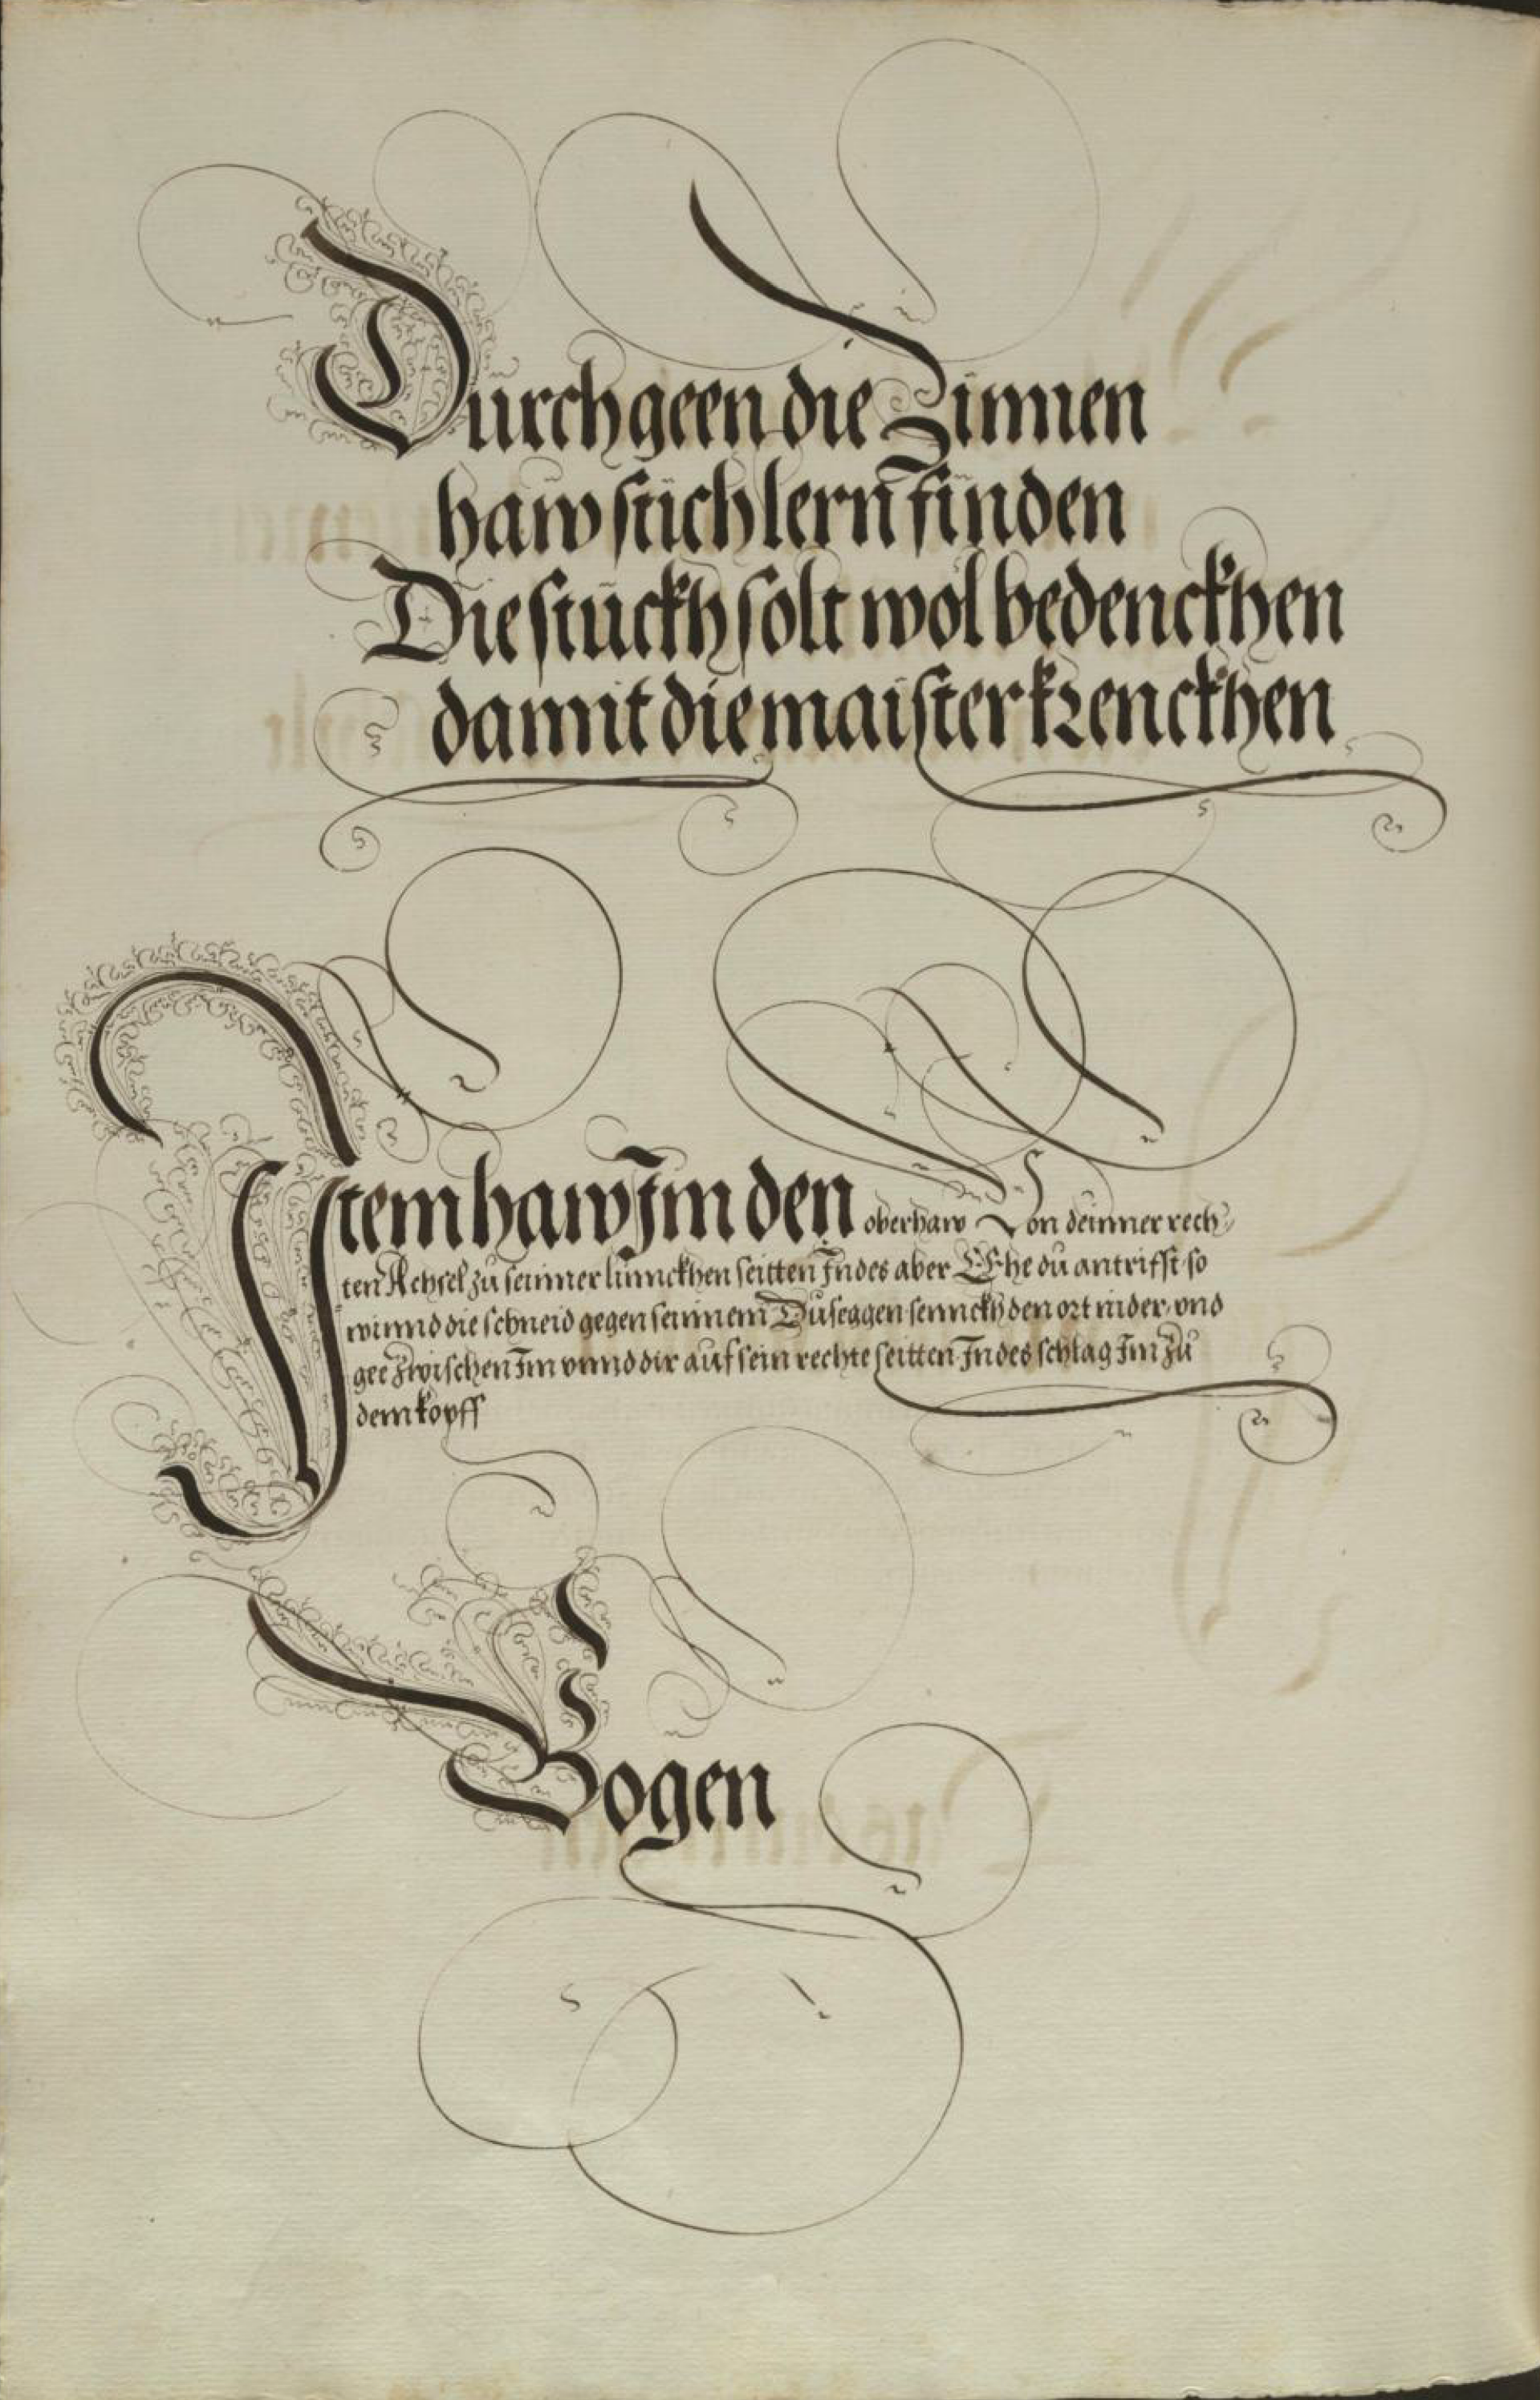 Durchgeen die Zinnen
haw stich lern finden
Die stuckh solt wol bedenckhen
damit die maister krenckhen
Item haw Im den oberhaw Von deinner rech,,
ten Achsel zu seinner linnckhen seitten Indes aber EEhe du antriffst so
winnd die schneid gegen seinnem Duseggen sennckh den ort nider vnd
gee zwischen Im vnnd dir auf sein rechte seitten Indes schlag Im zu
dem kopff
Bogen